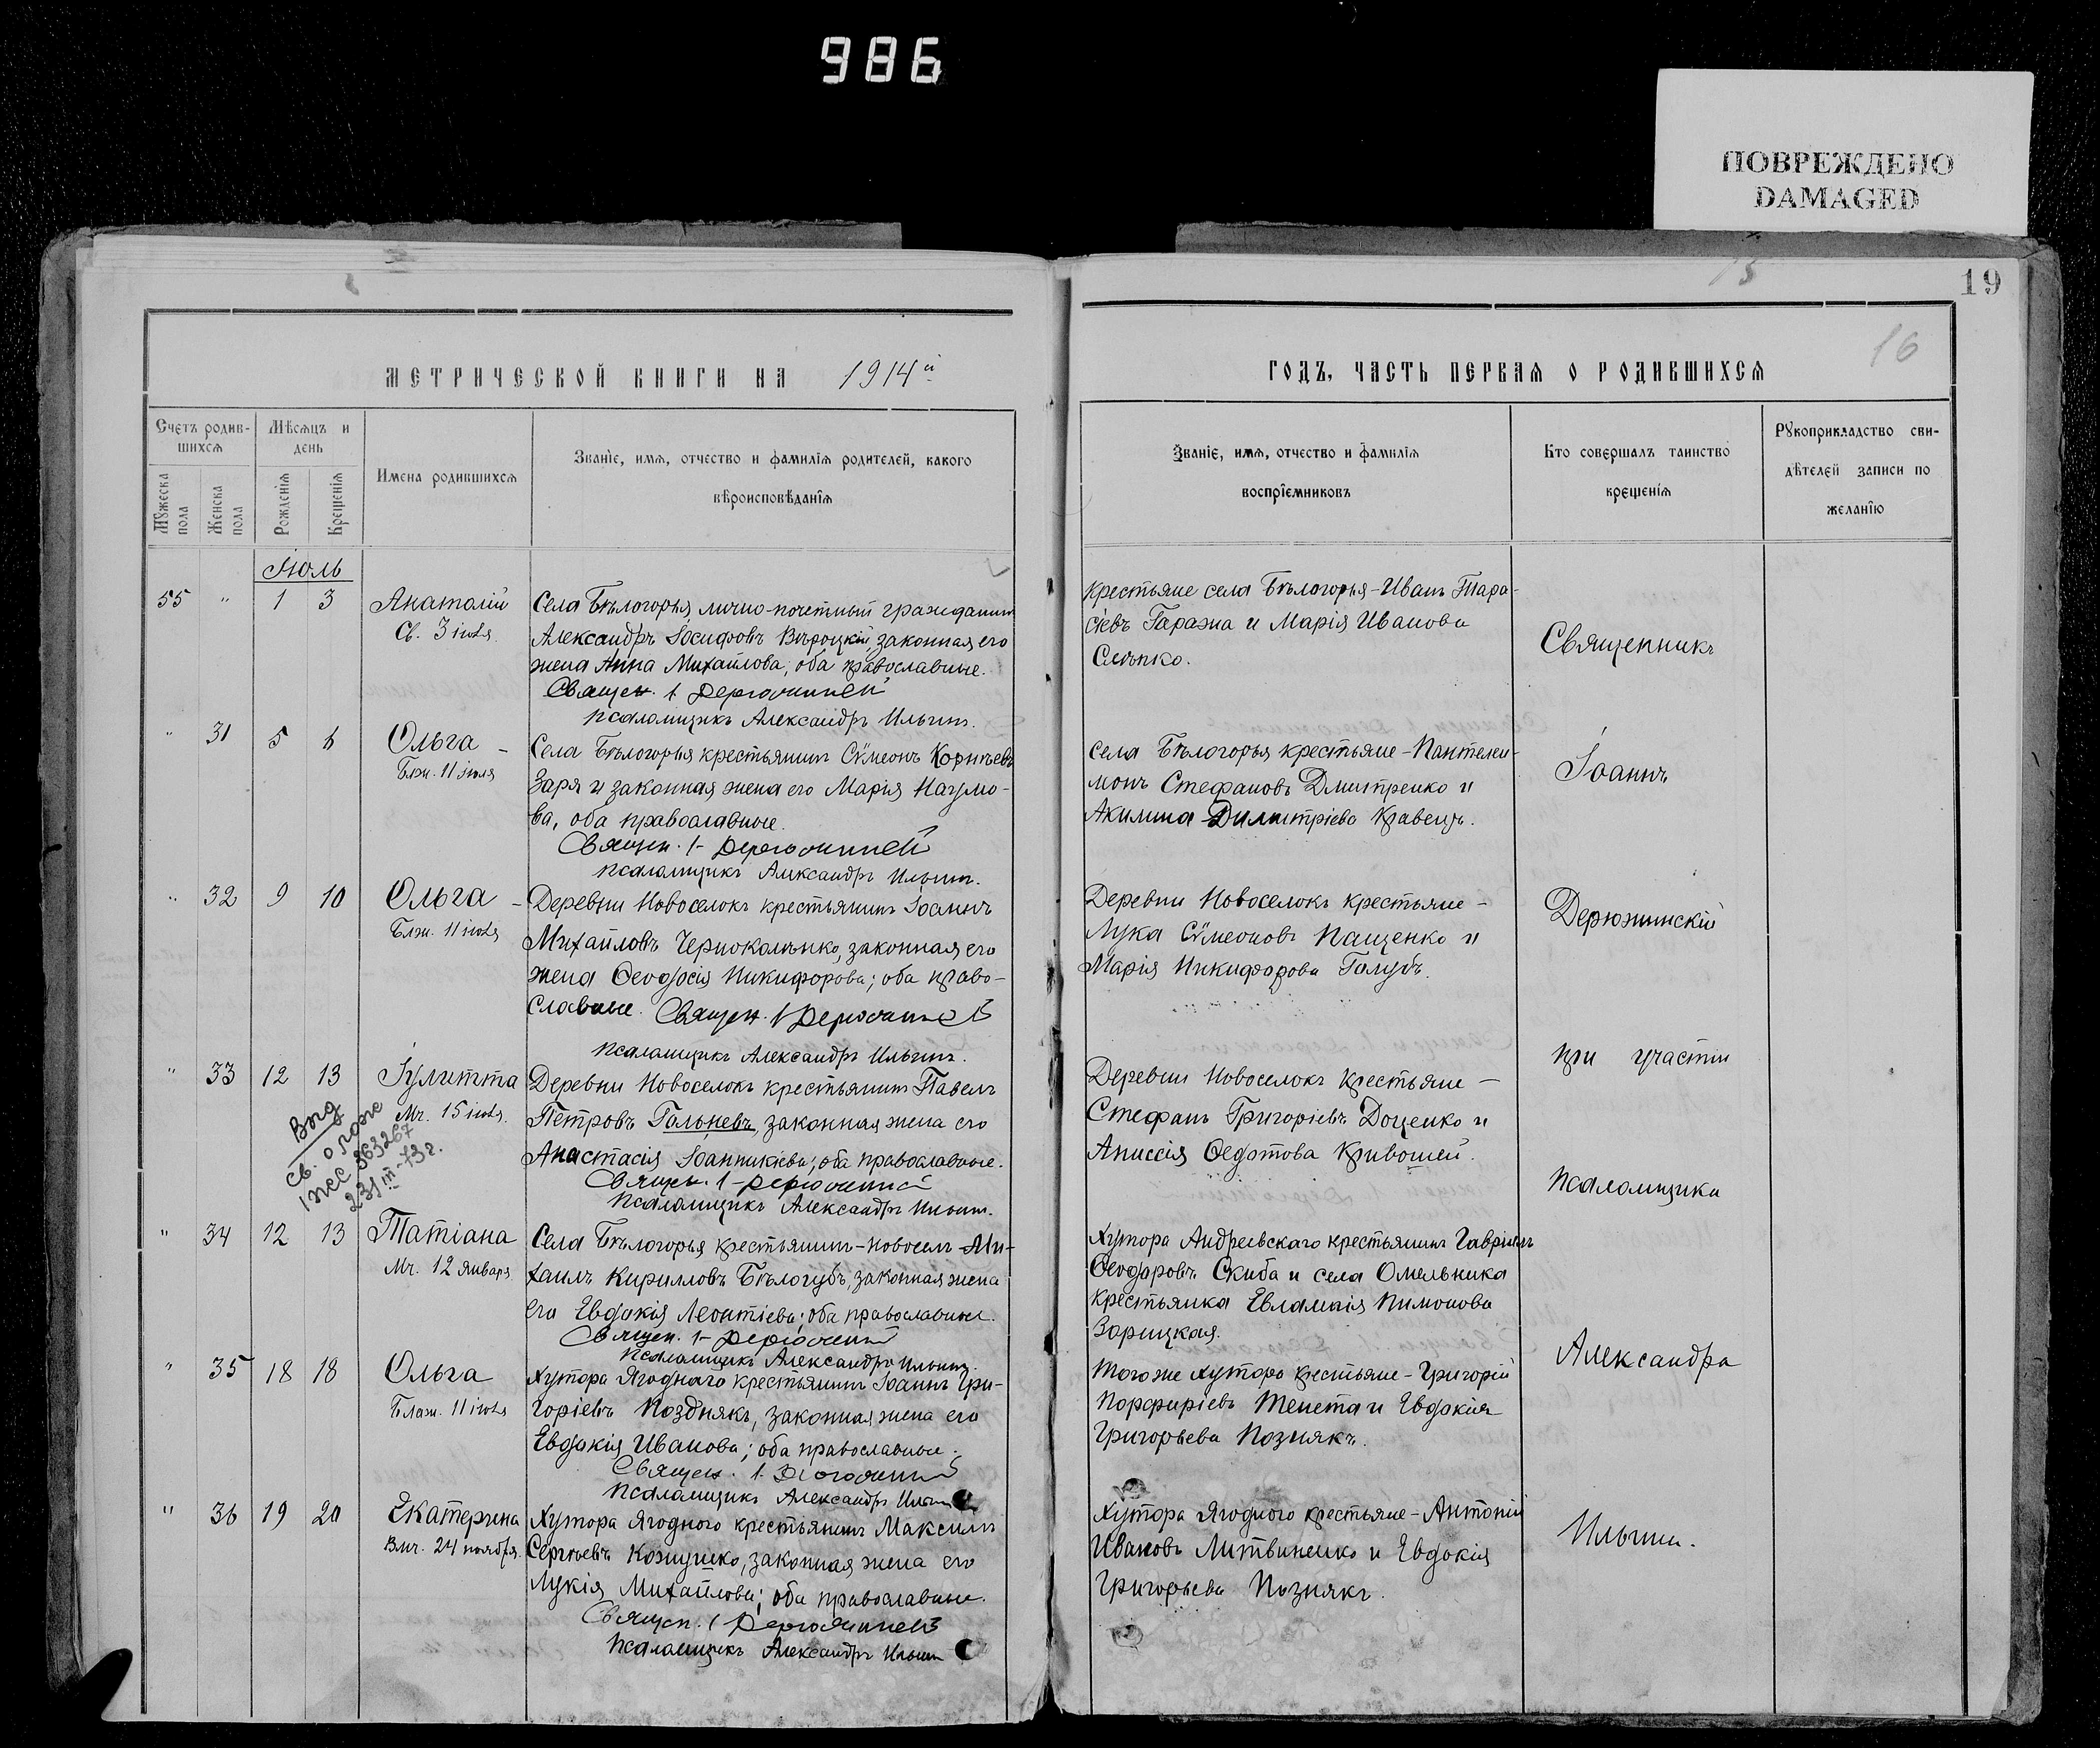 986
ПОВРЕЖДЕНО
DAMAGED
19
15
16
МЕТРИЧЕСКОЙ КНИГИ НА 1914й
ГОДЪ, ЧАСТЬ ПЕРВАЯ О РОДИВШИХСЯ
Счетъ родив-
шихся
Мѣсяцъ и
день
Мужеска
пола
Женска
пола
Рожденія
Крещенія
Имена родившихся
Званіе, имя, отчество и фамилія родителей, какого
вѣроисповѣданія
Званіе, имя, отчество и фамилія
воспріемниковъ
Кто совершалъ таинство
крещенія
Рукоприкладство сви-
дѣтелей записи по
желанію
Іюль
55 " 1 3 Анатолій
Св. 3 іюля
Села Бѣлогорья, лично-почетный гражданинъ
Александръ Іосифовъ Вѣроцкій, законная его
жена Анна Михайлова; оба православные.
Священ. І. Дерюжинскій
Псаломщикъ Александръ Ильинъ.
Крестьяне села Бѣлогорья-Иванъ Тара-
сіевъ Гаража и Марія Иванова
Слѣпко.
" 31 5 6 Ольга -
Блж. 11 іюля
Села Бѣлогорья крестьянинъ Сѵмеонъ Корнѣевъ
Заря и законная жена его Марія Наумо-
ва, оба православные.
Священ. І. Дерюжинскій
Псаломщикъ Александръ Ильинъ.
Села Бѣлогорья крестьяне-Пантелеи-
монъ Стефановъ Дмитренко и
Акилина Димитріева Кравецъ.
" 32 9 10 Ольга -
Блж. 11 іюля
Деревни Новоселокъ крестьянинъ Іоаннъ
Михайловъ Черноколѣнко, законная его
жена Ѳеодосія Никифорова; оба право-
славные. Священ. І. Дерюжинскій
Псаломщикъ Александръ Ильинъ.
Деревни Новоселокъ крестьяне -
Лука Сѵмеоновъ Пащенко и
Марія Никифорова Голубъ.
" 33 12 13 Іулитта
Мч. 15 іюля.
Выд
св. о рож
1ЖС 363267
23/III-73г.
Деревни Новоселокъ крестьянинъ Павелъ
Петровъ Гольневъ, законная жена его
Анастасія Іоанникіева; оба православные.
Священ. І. Дерюжинскій
Псаломщикъ Александръ Ильинъ.
Деревни Новоселокъ крестьяне -
Стефанъ Григоріевъ Доценко и
Аниссія Ѳедотова Кривошей.
" 34 12 13 Татіана
Мч. 12 Января
Села Бѣлогорья крестьянинъ-новоселъ-Ми-
хаилъ Кирилловъ Бѣлогубъ, законная жена
его Евдокія Леонтіева; оба православные.
Священ. І. Дерюжинскій
Псаломщикъ Александръ Ильинъ.
Хутора Андреевскаго крестьянинъ Гавріилъ
Ѳеодоровъ Скиба и села Омельника
крестьянка Евлампія Пимонова
Зарицкая.
" 35 18 18 Ольга
Блаж. 11 іюля
Хутора Ягоднаго крестьянинъ Іоаннъ Гри-
горіевъ Позднякъ, законная жена его
Евдокія Иванова; оба православные.
Священ. І. Дерюжинскій
Псаломщикъ Александръ Ильинъ
Того же хутора крестьяне-Григорій
Порфиріевъ Тенета и Евдокія
Григорьева Познякъ.
" 36 19 20 Екатерина
Вмч. 24 ноября.
Хутора Ягодного крестьянинъ Максимъ
Сергѣевъ Кожушко, законная жена его
Лукія Михайлова; оба православные.
Священ. І. Дерюжинскій
Псаломщикъ Александръ Ильинъ
Хутора Ягодного крестьяне-Антоній
Ивановъ Литвиненко и Евдокія
Григорьева Познякъ.
Священникъ
Іоаннъ
Дерюжинскій
при участіи
псаломщика
Александра
Ильина.